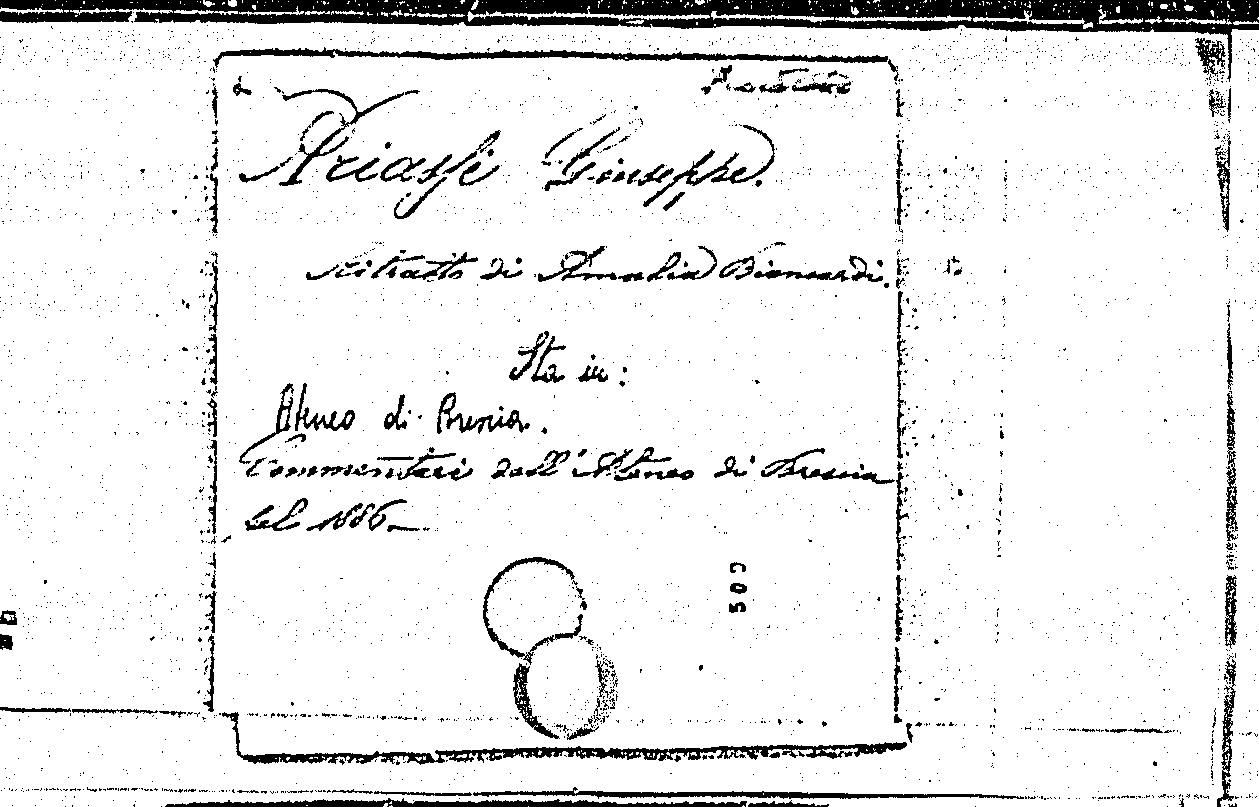 Ariassi Giuseppe.
Ritratto di Amalia Biancardi.
Sta in:
Ateneo di Brescia.
Commentari dell'Ateneo di Brescia
del 1886
500